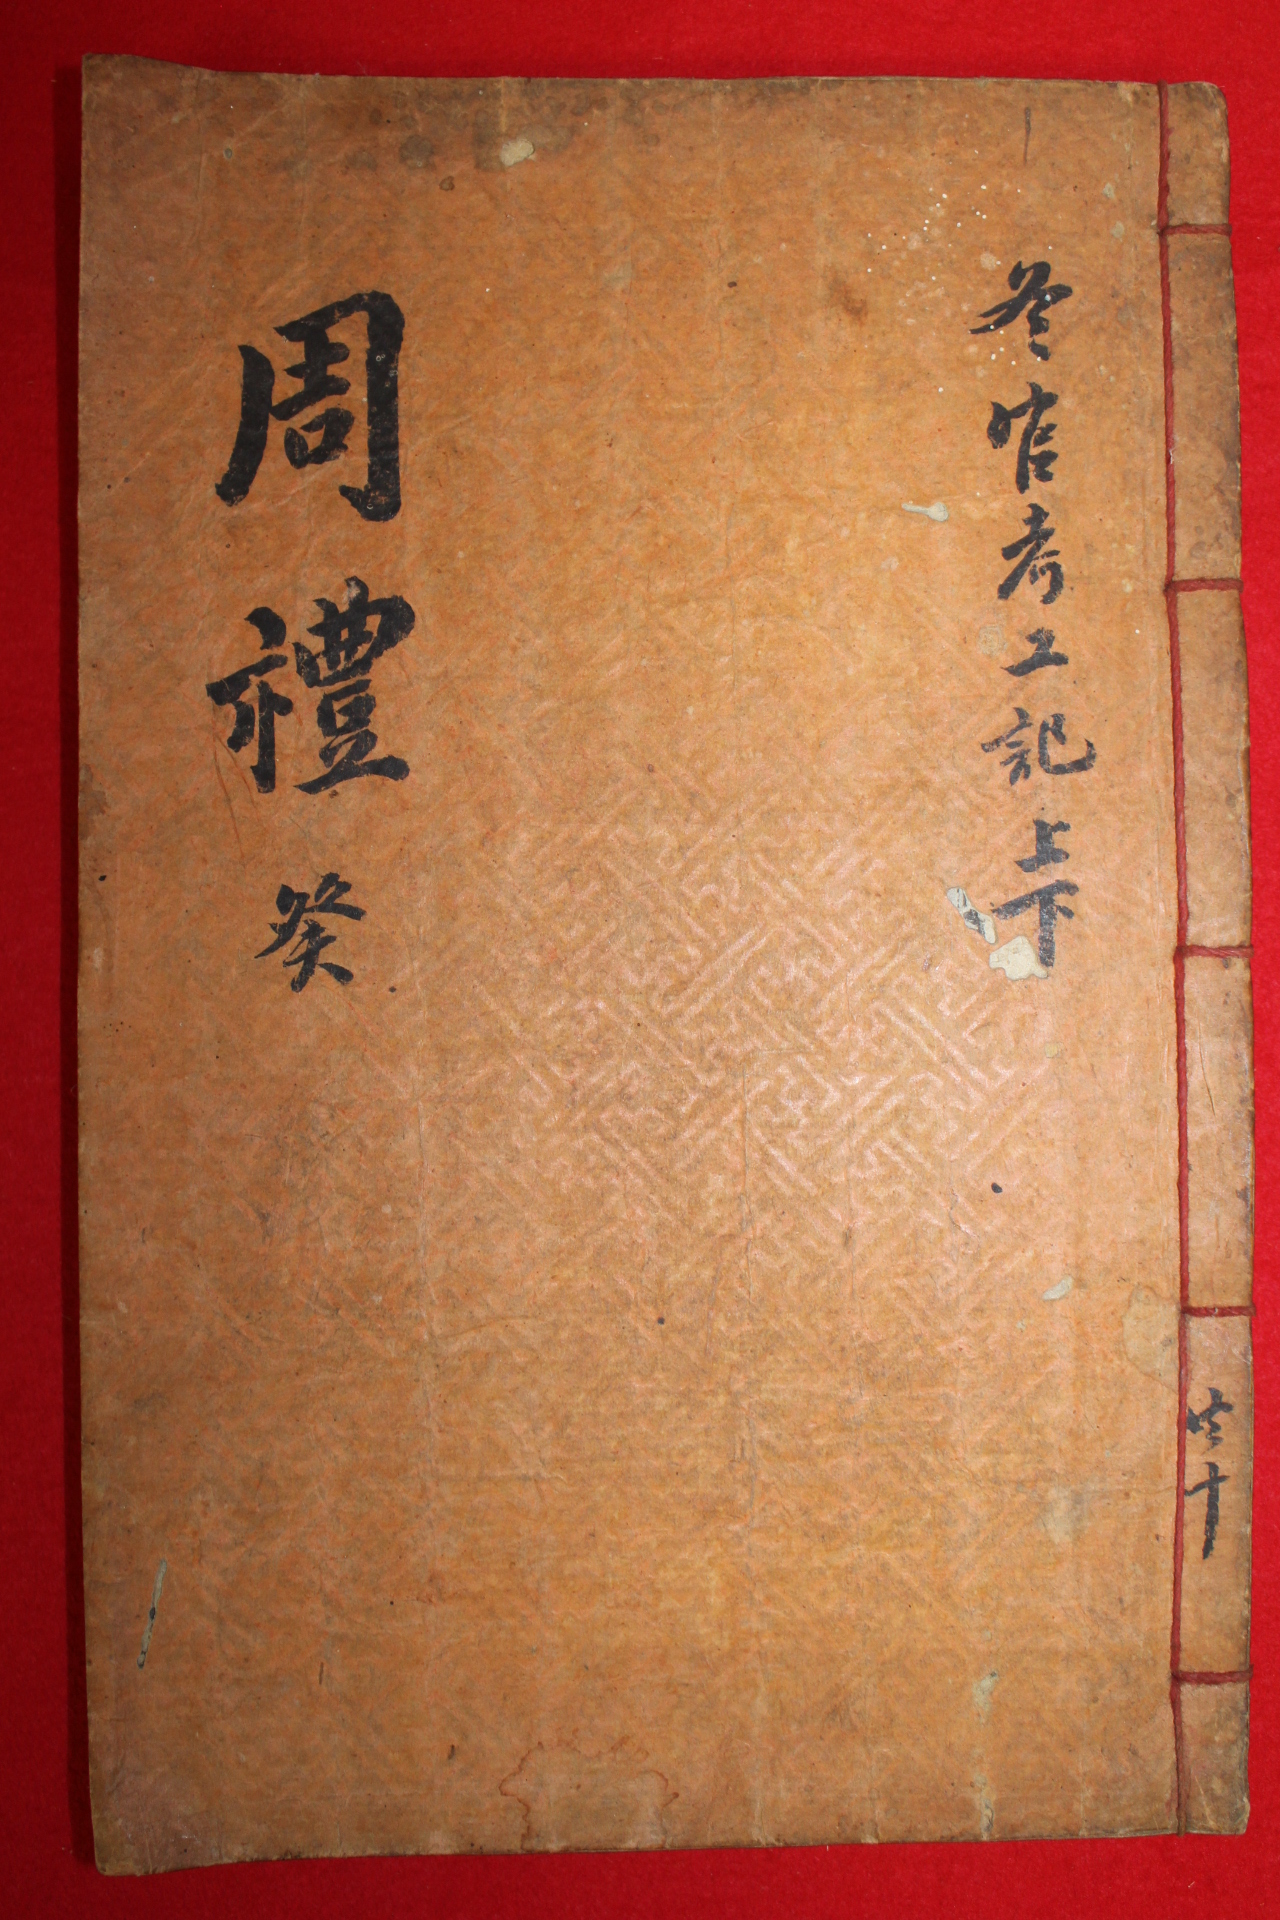 冬官考工記上下
周禮 癸
共十